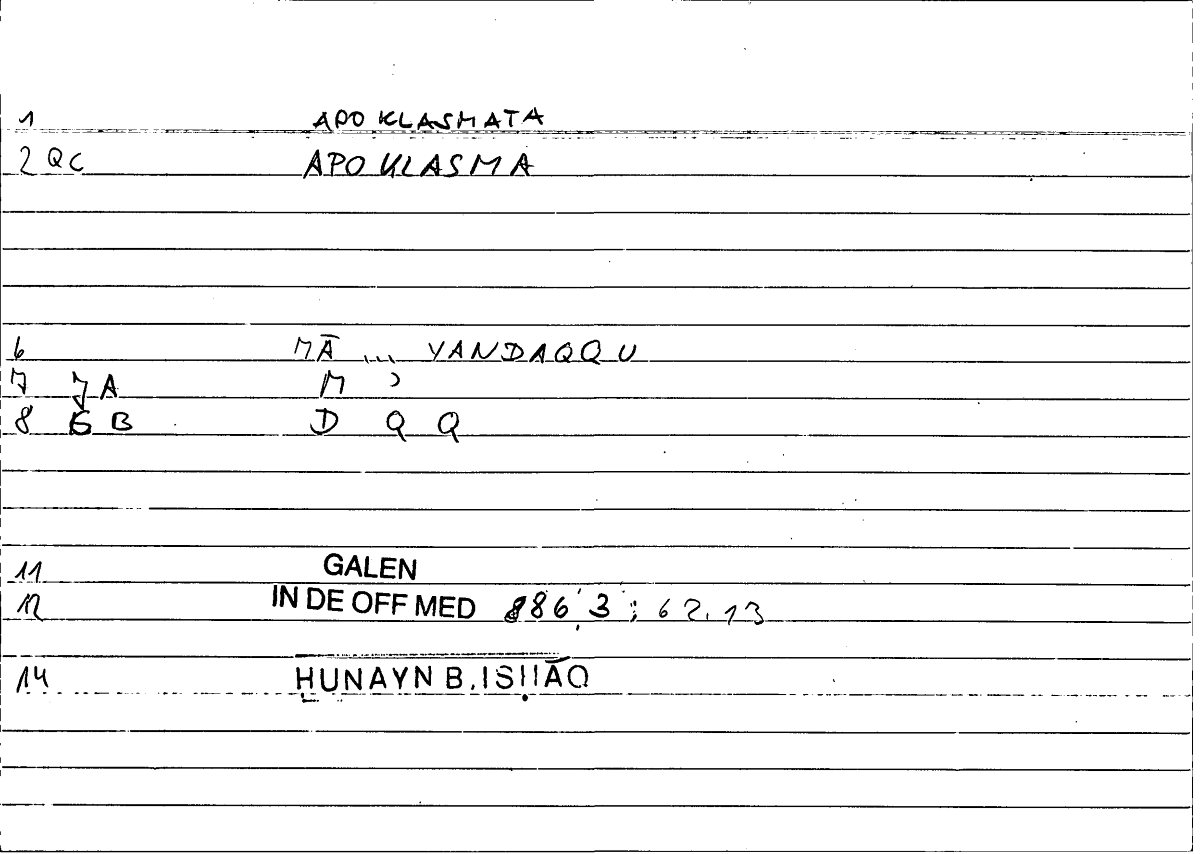 1 APO KLASMATA
2 QC APO KLASMA
6 MĀ ... YANDAQQU
7 JA M ʾ
8 GB D Q Q
11 GALEN
12 IN DE OFF MED 886,3 ; 62.13
14 ḤUNAYN B. ISḤĀQ